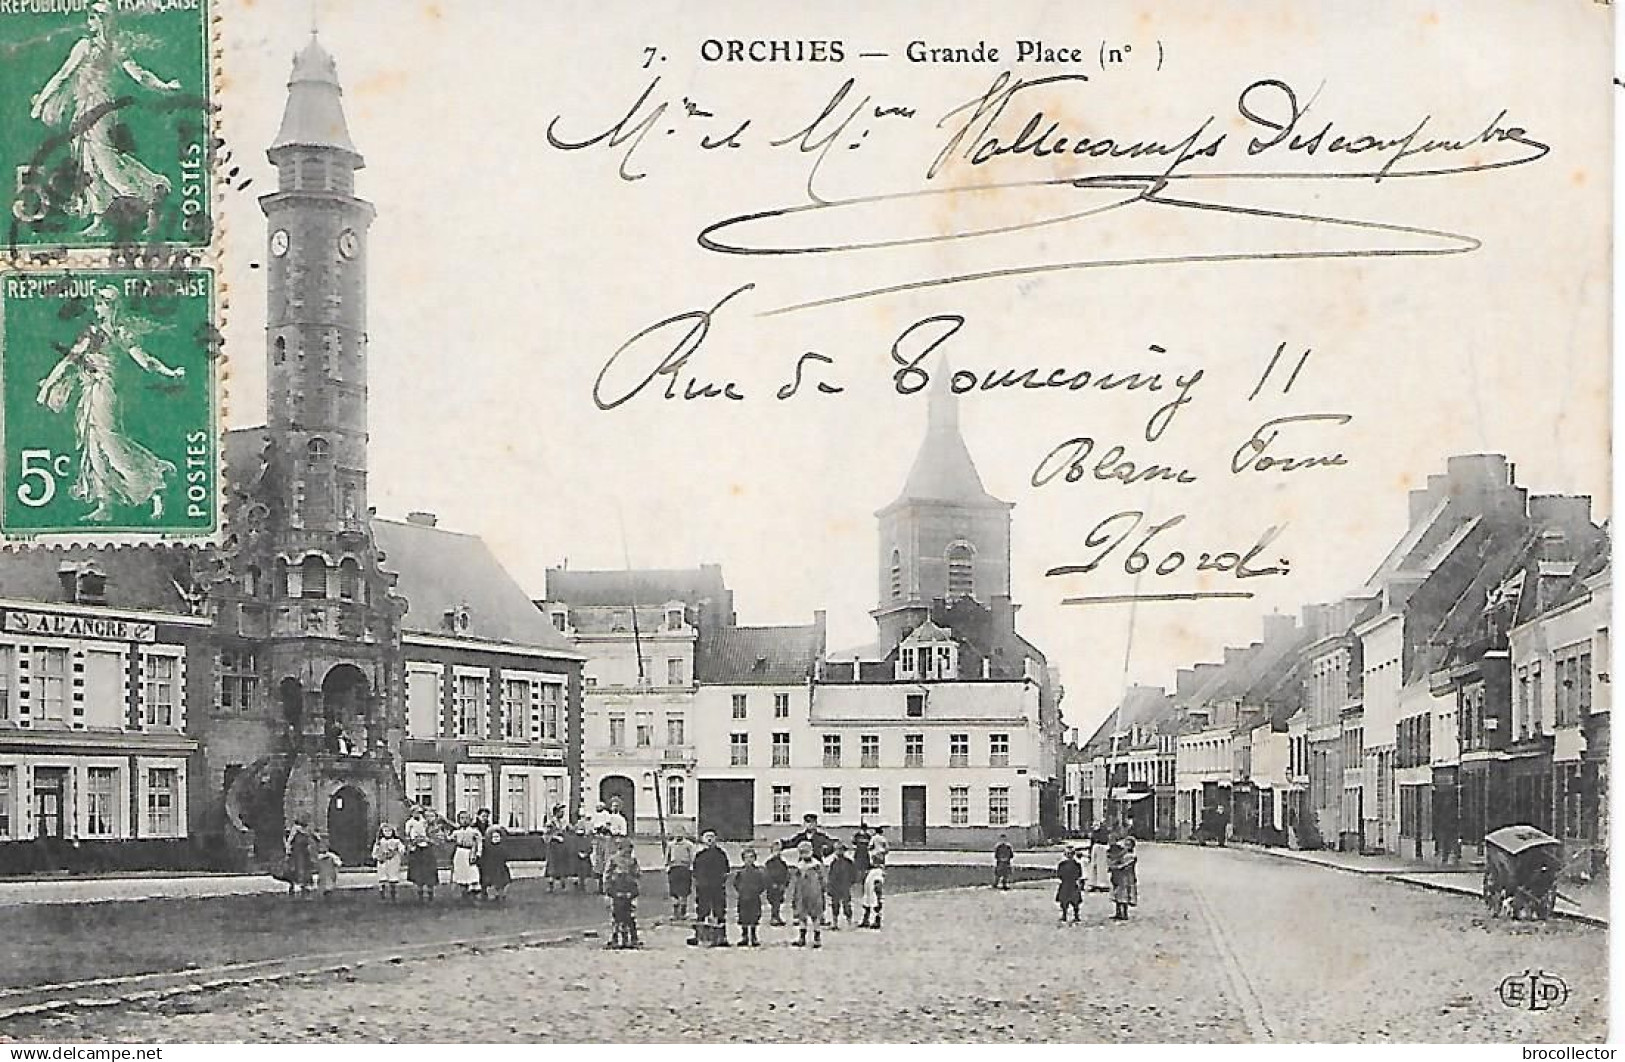 RÉPUBLIQUE FRANÇAISE
5c POSTES
RÉPUBLIQUE FRANÇAISE
5c POSTES
7. ORCHIES — Grande Place (n° )
Mr et Mme Wallecamps
Rue de Tourcoing 11
Blanc Four
Nord
A L'ANCRE
ELD
delcampe.net
brocollector